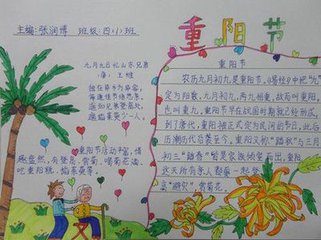 主编:张润博 班级:四(1)班
九月九日忆山东兄弟
(唐)王维
独在异乡为异客,
每逢佳节倍思亲。
遥知兄弟登高处,
遍插茱萸少一人。
重阳节活动丰富,情
趣盎然,有登高、赏菊、喝菊花酒、
吃重阳糕、插茱萸等。
重阳节
重阳节
农历九月初九是重阳节,《易经》中把“九”
定为阳数,九月初九,两九相重,故而叫重阳,
也叫重九。重阳节早在战国时期就已经形成,
到了唐代,重阳被正式定为民间的节日,此后
历朝历代沿袭至今。重阳又称“踏秋”与三月
初三“踏春”皆是家族倾室而出,重阳
这天所有亲人都要一起登
高“避灾”、赏菊花。